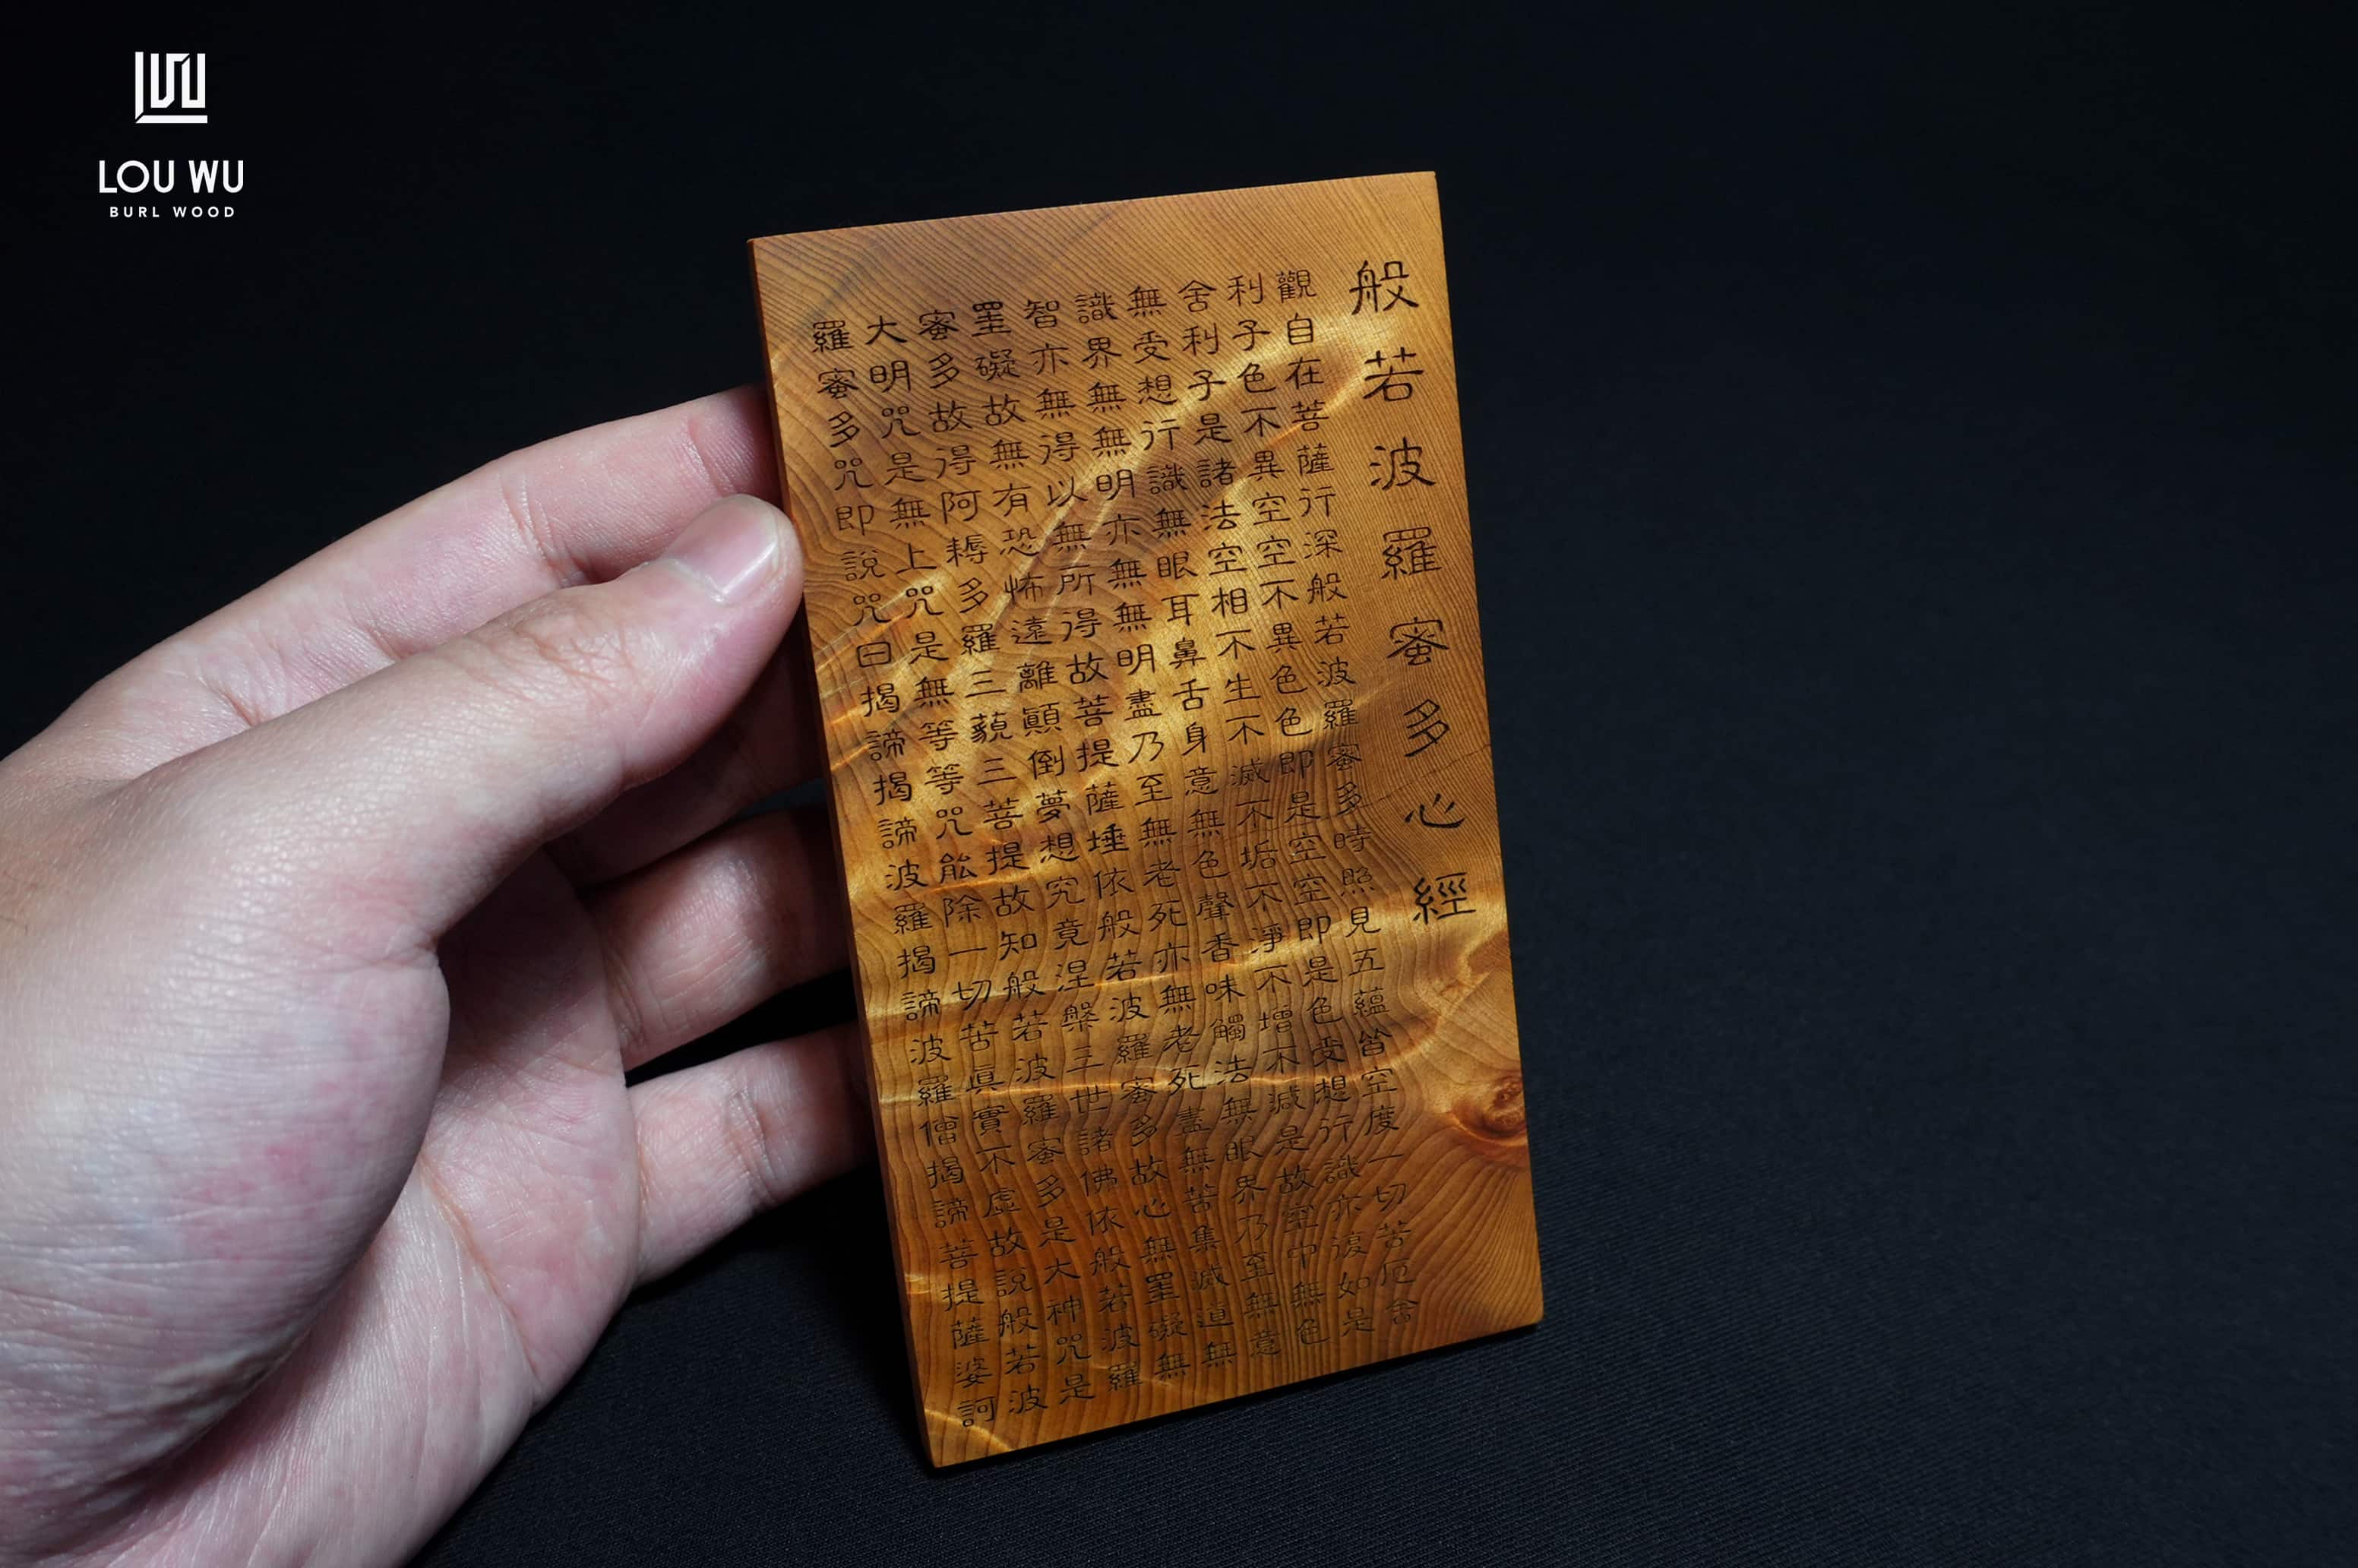 LOU WU
BURL WOOD
般若波羅蜜多心經
觀自在菩薩行深般若波羅蜜多時照見五蘊皆空度一切苦厄舍
利子色不異空空不異色色即是空空即是色受想行識亦復如是
舍利子是諸法空相不生不滅不垢不淨不增不減是故空中無色
無受想行識無眼耳鼻舌身意無色聲香味觸法無眼界乃至無意
識界無無明亦無無明盡乃至無老死亦無老死盡無苦集滅道無
智亦無得以無所得故菩提薩埵依般若波羅蜜多故心無罣礙無
罣礙故無有恐怖遠離顚倒夢想究竟涅槃三世諸佛依般若波羅
蜜多故得阿耨多羅三藐三菩提故知般若波羅蜜多是大神咒是
大明咒是無上咒是無等等咒能除一切苦眞實不虛故說般若波
羅蜜多咒即說咒曰揭諦揭諦波羅揭諦波羅僧揭諦菩提薩婆訶